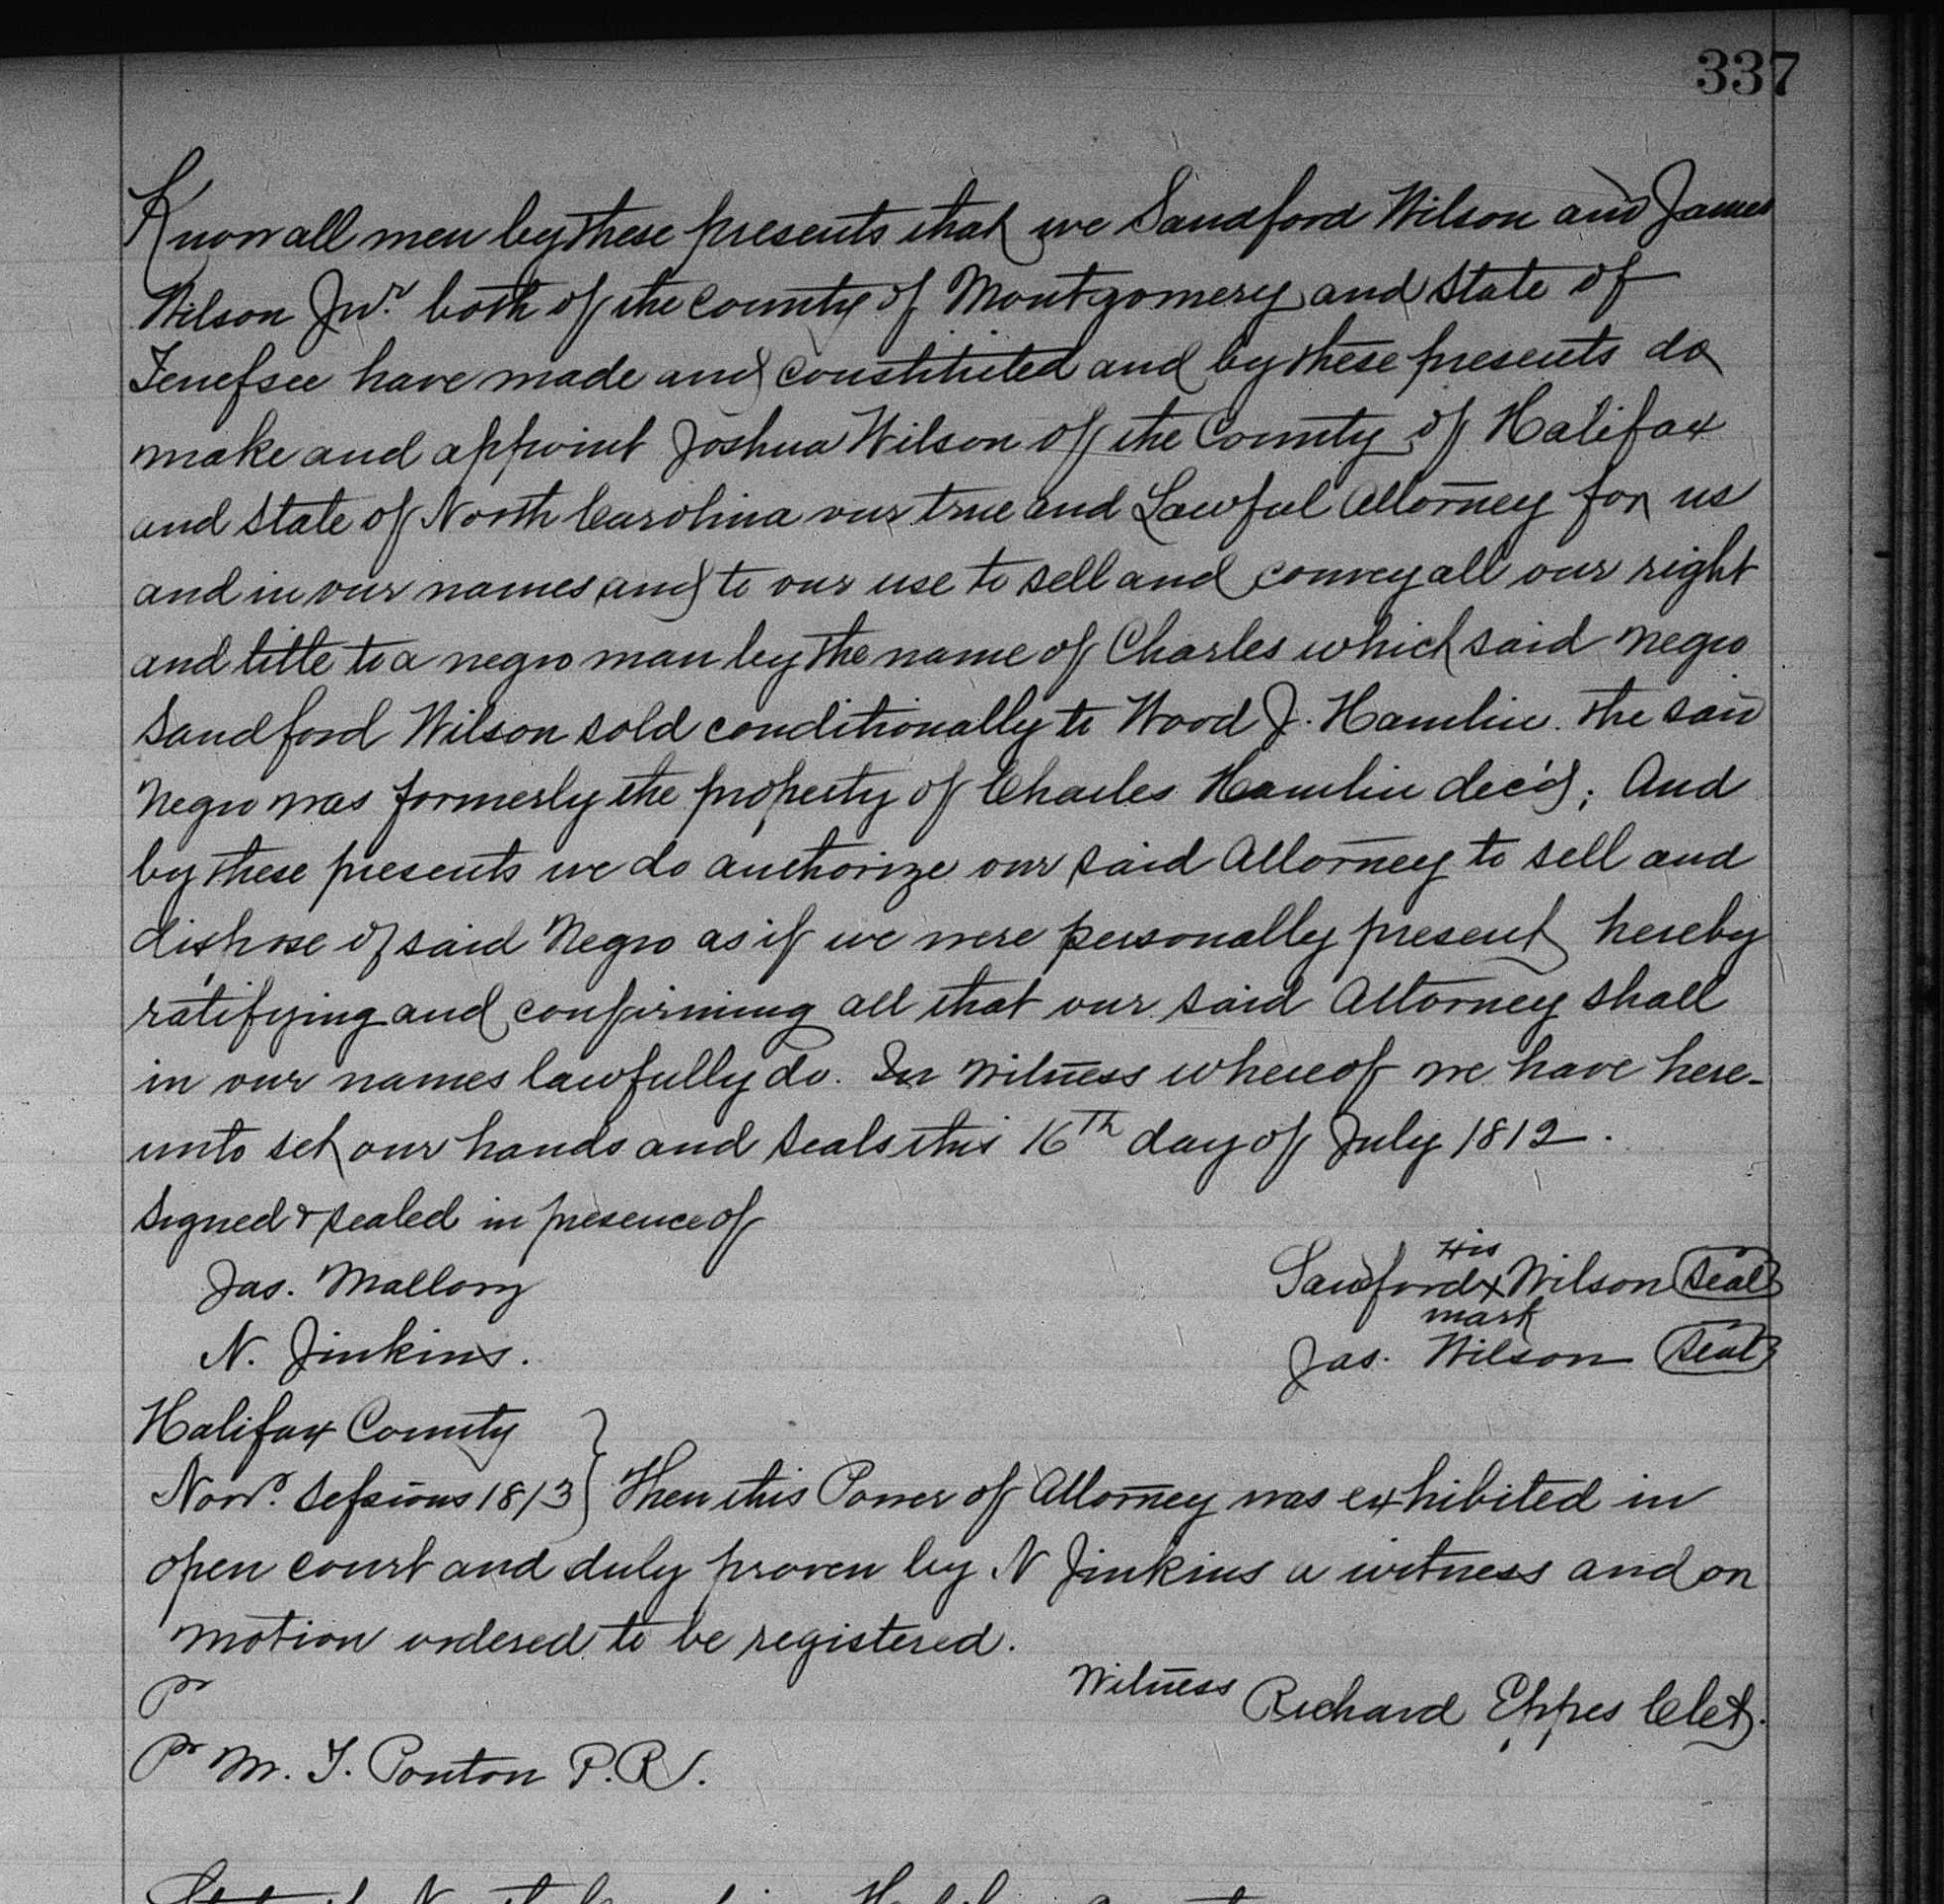 337
Know all men by these presents that we Sandford Wilson and James
Wilson Jnr. both of the County of Montgomery and State of
Tenessee have made and constituted and by these presents do
make and appoint Joshua Wilson of the County of Halifax
and State of North Carolina our true and Lawful Attorney for us
and in our names and to our use to sell and convey all our right
and title to a negro man by the name of Charles which said negro
Sandford Wilson sold conditionally to Wood J. Hamlin. The said
Negro was formerly the property of Charles Hamlin dec'd; And
by these presents we do authorize our said Attorney to sell and
dispose of said Negro as if we were personally present hereby
ratifying and confirming all that our said Attorney shall
in our names lawfully do. In Witness whereof we have here-
unto set our hands and seals this 16th day of July 1812.
Signed & sealed in presence of
Jas. Mallory
N. Jinkins.
his
Sandford x Wilson Seal
mark
Jas. Wilson Seal
Halifax County
Novr. Sessions 1813 } Then this Power of Attorney was exhibited in
open court and duly proven by N Jinkins a witness and on
motion ordered to be registered.
Witness Richard Eppes Clet.
Pr
Pr M. T. Ponton P.R.